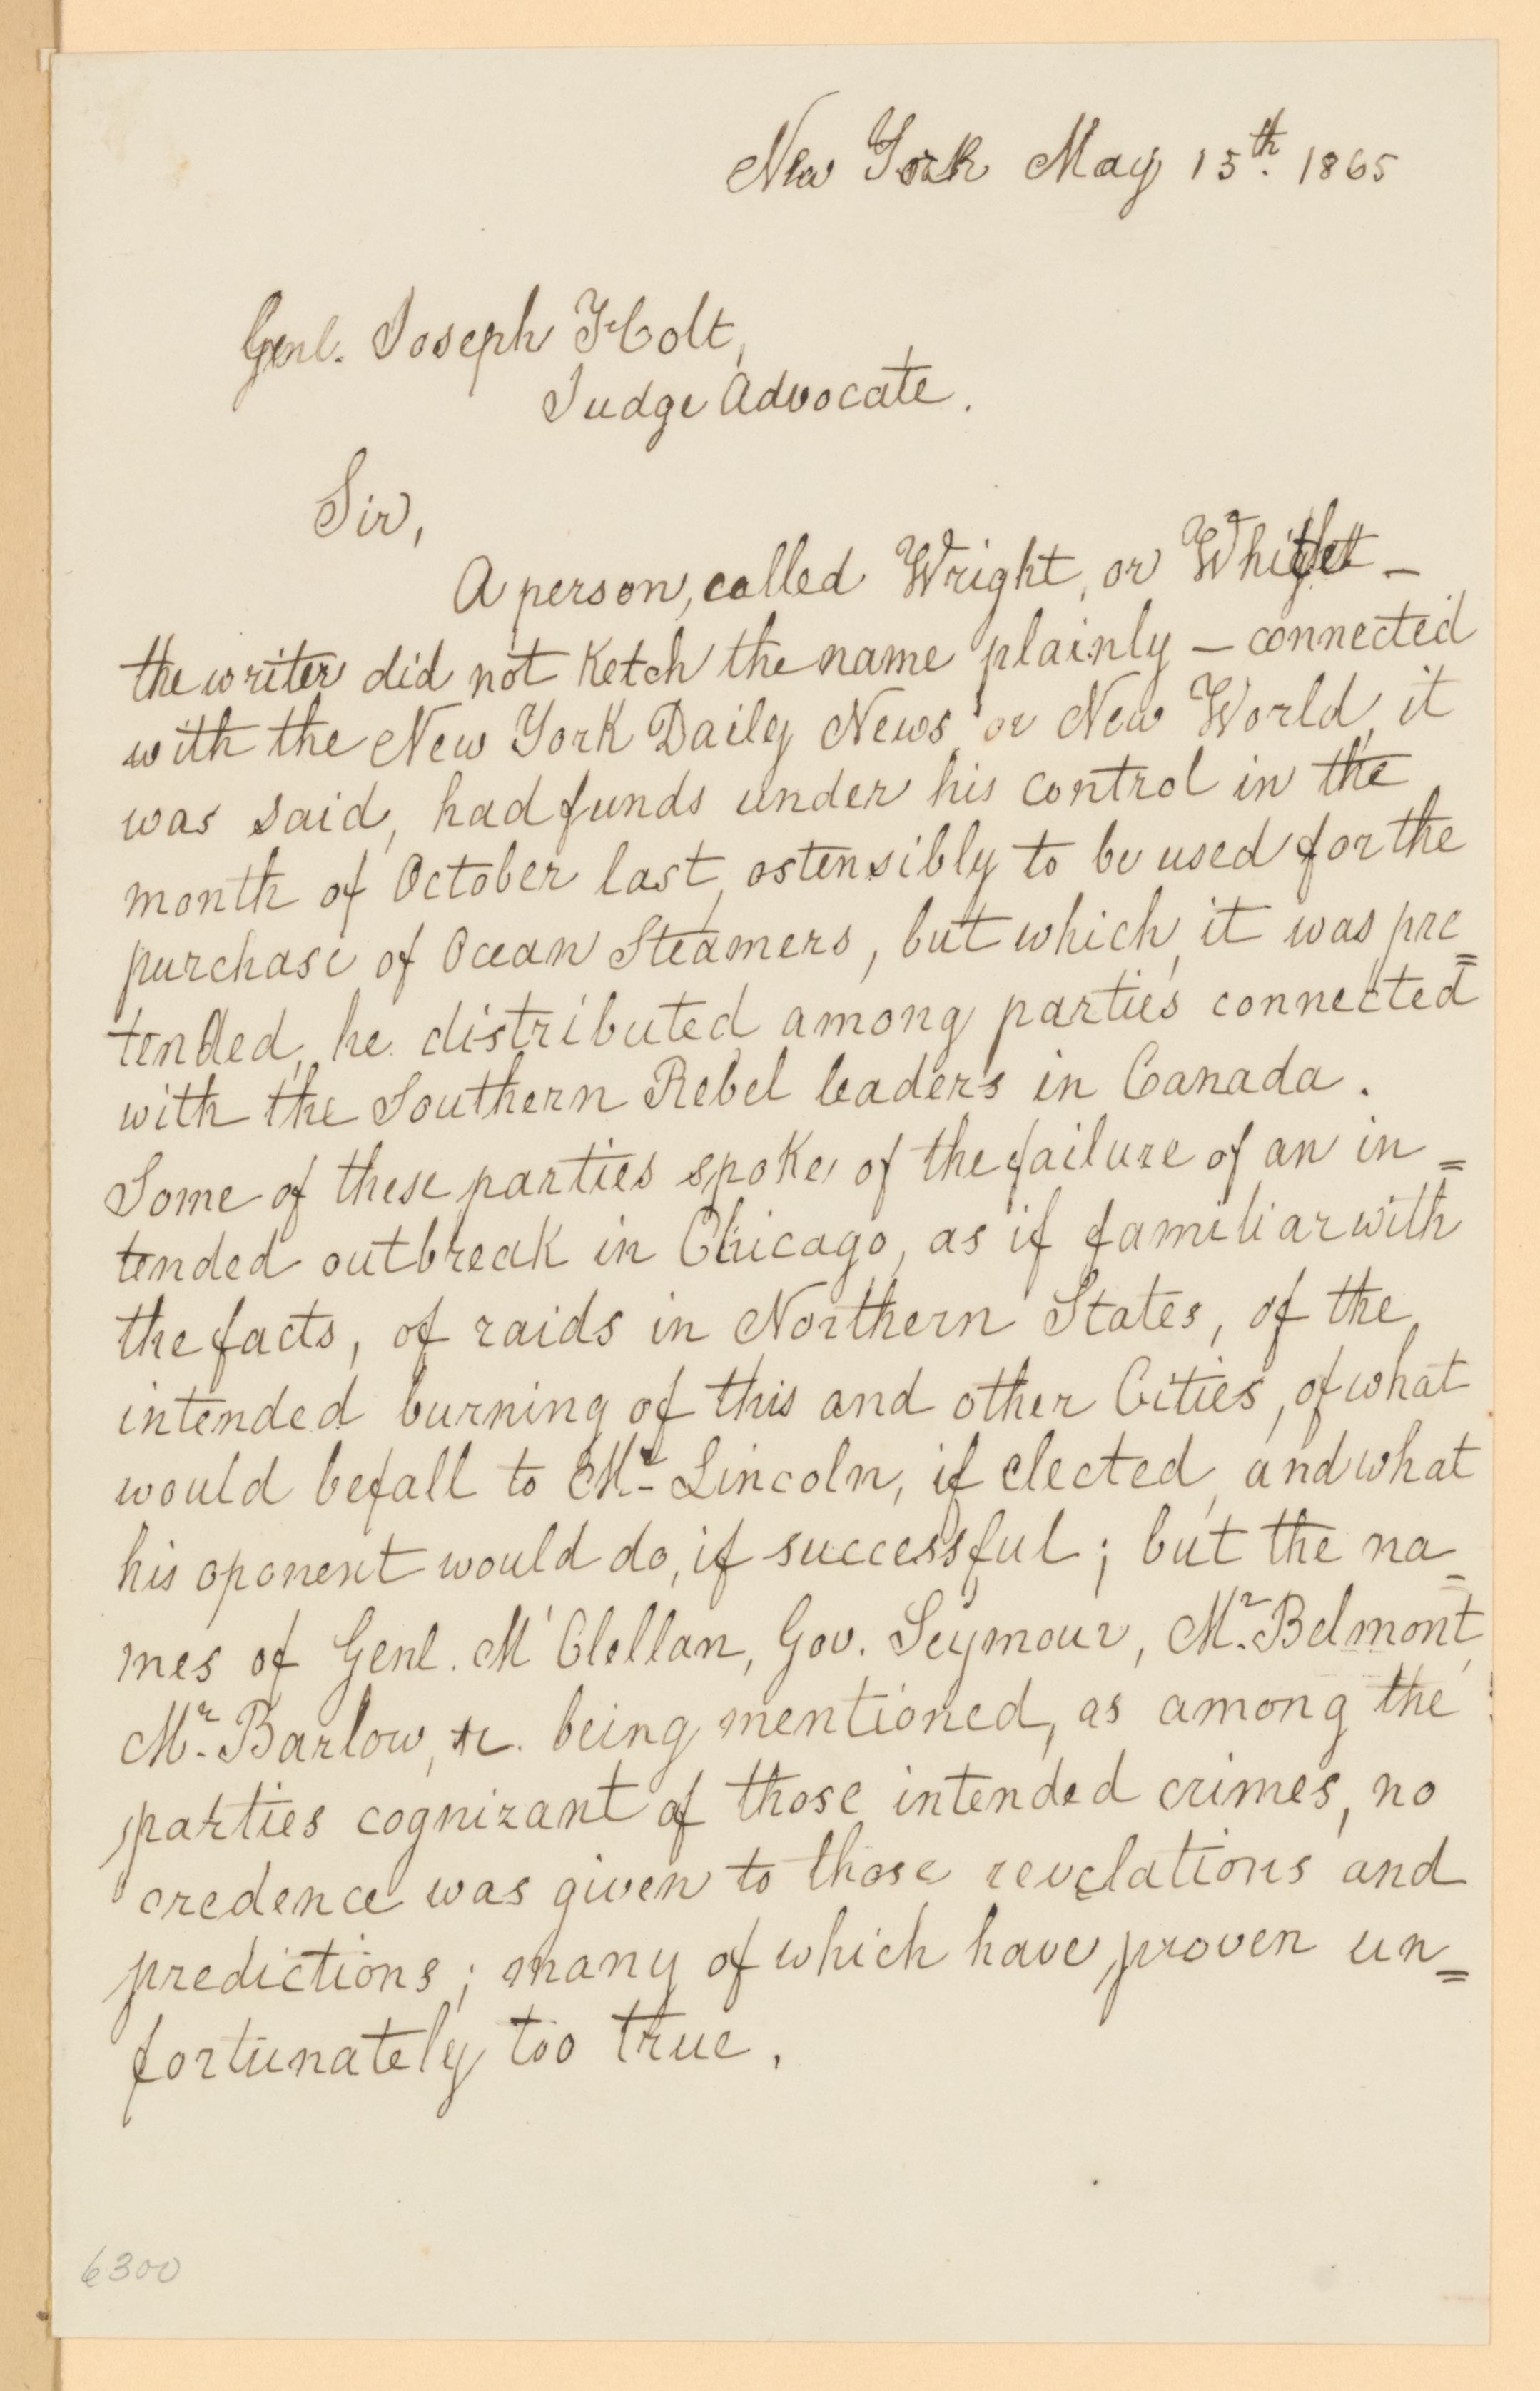 New York May 15th. 1865
Genl. Joseph Holt,
Judge Advocate.
Sir,
A person, called Wright, or
the writer did not Ketch the name plainly — connected
with the New York Daily News or New World, it
was said, had funds under his control in the
month of October last, ostensibly to be used for the
purchase of Ocean Steamers, but which, it was pre=
tended, he distributed among parties connected
with the Southern Rebel leaders in Canada.
Some of these parties spoke of the failure of an in=
tended outbreak in Chicago, as if familiar with
the facts, of raids in Northern States, of the
intended burning of this and other Cities, of what
would befall to Mr. Lincoln, if elected, and what
his oponent would do, if successful; but the na=
mes of Genl. M'Clellan, Gov. Seymour, Mr. Belmont,
Mr. Barlow, &c. being mentioned, as among the
parties cognizant of those intended crimes, no
credence was given to those revelations and
predictions; many of which have proven un=
fortunately too true.
6300